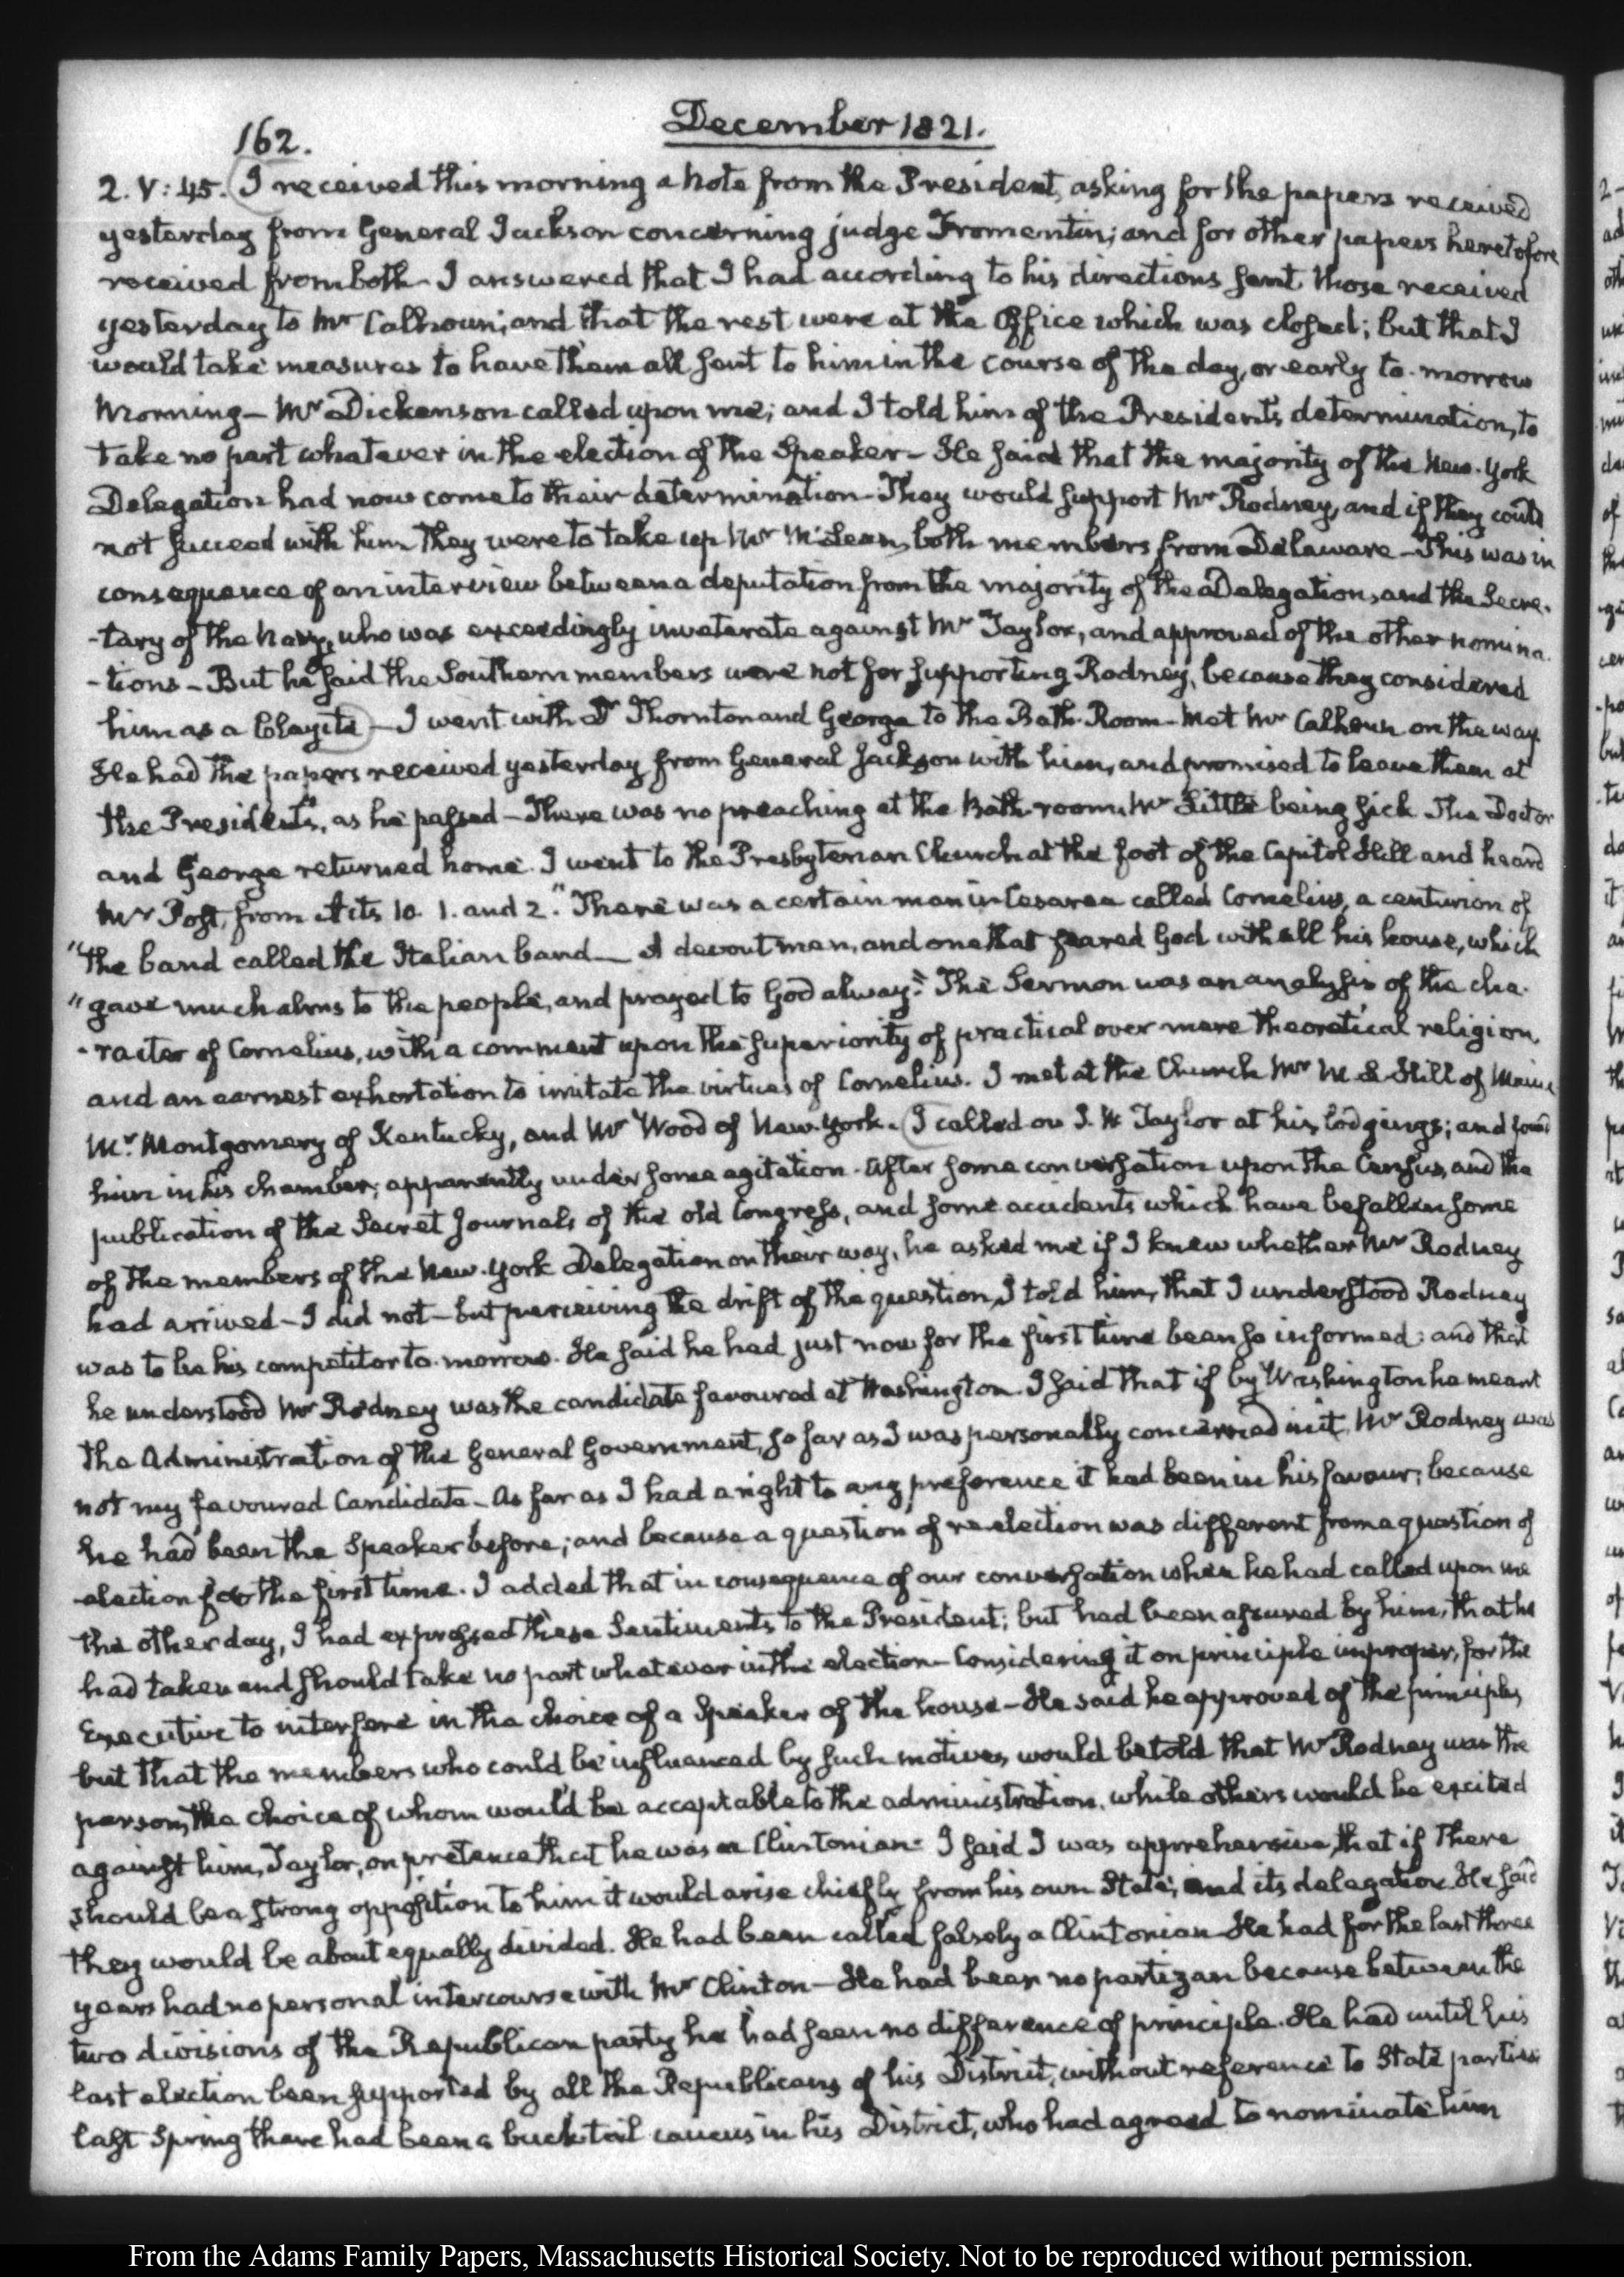 162.
December 1821.
2. V: 45. I received this morning a Note from the President, asking for the papers received
yesterday from General Jackson concerning judge Fromentin; and for other papers heretofore
received from both. I answered that I had according to his directions sent those received
yesterday to Mr Calhoun; and that the rest were at the Office which was closed; but that I
would take measures to have them all sent to him in the course of the day, or early to-morrow
Morning— Mr Dickenson called upon me; and I told him of the President's determination, to
take no part whatever in the election of the Speaker— He said that the majority of the New-York
Delegation had now come to their determination— They would support Mr Rodney, and if they could
not succeed with him they were to take up Mr McLean, both members from Delaware— This was in
consequence of an interview between a deputation from the majority of the Delegation, and the Secre-
-tary of the Navy, who was exceedingly inveterate against Mr Taylor, and approved of the other nomina-
-tions— But he said the Southern members were not for supporting Rodney, because they considered
him as a Clayite— I went with Dr Thornton and George to the Bath-Room— Met Mr Calhoun on the way
He had the papers received yesterday from General Jackson with him, and promised to leave them at
the President's, as he passed— There was no preaching at the Bath-room, Mr Little being sick The Doctor
and George returned home. I went to the Presbyterian Church at the foot of the Capitol Hill and heard
Mr Post, from Acts 10. 1. and 2. "There was a certain man in Cesarea called Cornelius, a centurion of
"the band called the Italian band— A devout man, and one that feared God with all his house, which
"gave much alms to the people, and prayed to God alway." The Sermon was an analysis of the cha-
-racter of Cornelius, with a comment upon the superiority of practical over mere theoretical religion,
and an earnest exhortation to imitate the virtues of Cornelius. I met at the Church Mr M. L. Hill of Maine
Mr Montgomery of Kentucky, and Mr Wood of New-York. I called on J. W. Taylor at his lodgings; and found
him in his chamber; apparently under some agitation. After some conversation upon the Census, and the
publication of the Secret Journals of the old Congress, and some accidents which have befallen some
of the members of the New-York Delegation on their way, he asked me if I knew whether Mr Rodney
had arrived— I did not— but perceiving the drift of the question, I told him, that I understood Rodney
was to be his competitor to-morrow. He said he had just now for the first time been so informed: and that
he understood Mr Rodney was the candidate favoured at Washington. I said that if by Washington he meant
the Administration of the General Government, so far as I was personally concerned in it, Mr Rodney was
not my favoured Candidate— As far as I had a right to any preference it had been in his favour; because
he had been the Speaker before; and because a question of re-election was different from a question of
election for the first time. I added that in consequence of our conversation when he had called upon me
the other day, I had expressed these Sentiments to the President; but had been assured by him, that he
had taken and should take no part whatever in the election— Considering it on principle improper, for the
Executive to interfere in the choice of a Speaker of the house— He said he approved of the principle,
but that the members who could be influenced by such motives, would be told that Mr Rodney was the
person, the choice of whom would be acceptable to the administration, while others would be excited
against him, Taylor, on pretence that he was a Clintonian. I said I was apprehensive, that if there
should be a strong opposition to him it would arise chiefly from his own State, and its delegation. He said
they would be about equally divided. He had been called falsely a Clintonian— He had for the last three
years had no personal intercourse with Mr Clinton— He had been no partizan because between the
two divisions of the Republican party he had seen no difference of principle. He had until his
last election been supported by all the Republicans of his District, without reference to State parties
last Spring there had been a bucktail caucus in his District, who had agreed to nominate him
From the Adams Family Papers, Massachusetts Historical Society. Not to be reproduced without permission.